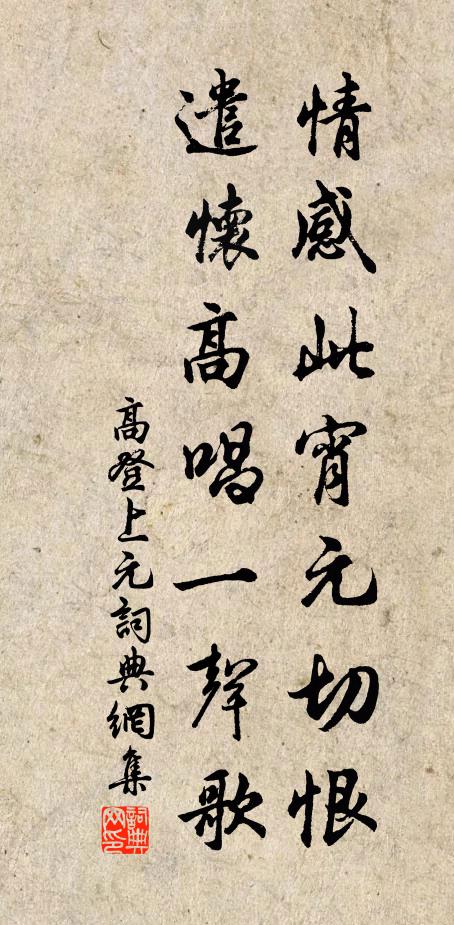 情感此宵元切恨
遣懷高唱一聲歌
高登上元詞典網集
詞典網印